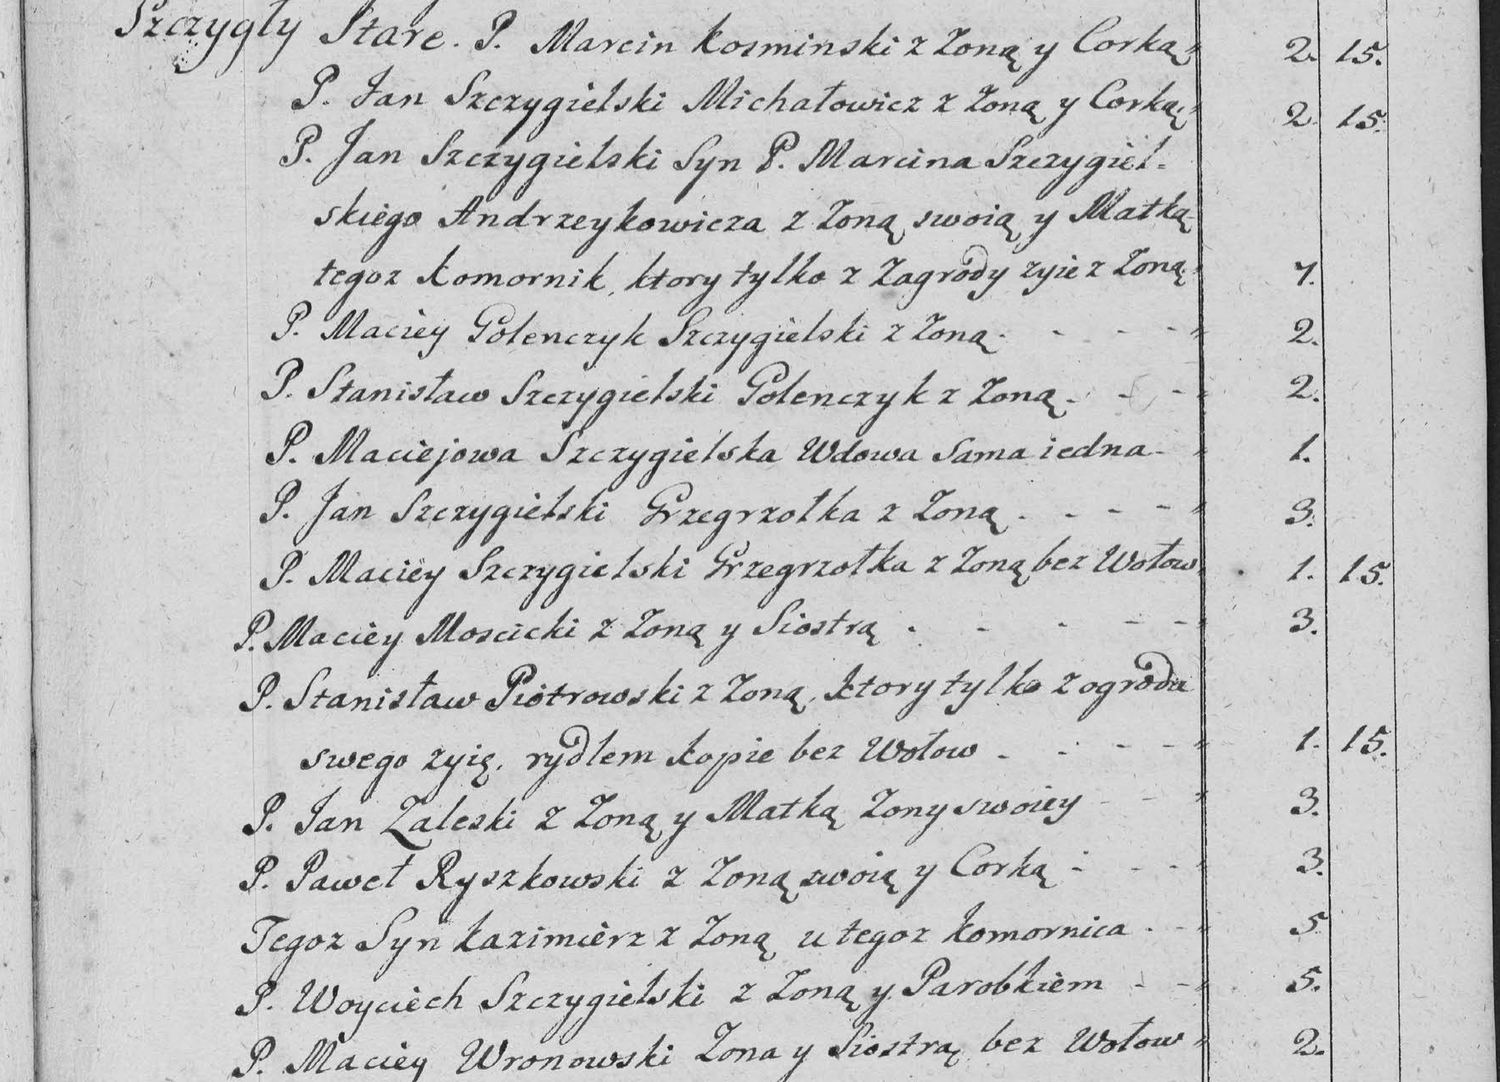 Szczygły Stare. P. Marcin Kosminski z Zoną y Corką 2. 15.
P. Jan Szczygielski Michałowicz z Zoną y Corką 2. 15.
P. Jan Szczygielski Syn P. Marcina Szczygiel-
skiego Andrzeykowicza z Zoną swoią y Matką
tegoz Komornik, ktory tylko z Zagrody zyie z Zoną 7.
P. Maciey Golenczyk Szczygielski z Zoną - - - - 2.
P. Stanisław Szczygielski Golenczyk z Zoną - - - 2.
P. Maciejowa Szczygielska Wdowa Sama iedna - 1.
P. Jan Szczygielski Grzegrzołka z Zoną - - - - 3.
P. Maciey Szczygielski Grzegrzołka z Zoną bez Wołow 1. 15.
P. Maciey Moscicki z Zoną y Siostrą - - - - - 3.
P. Stanisław Piotrowski z Zoną, ktory tylko z ogrodu
swego zyię, rydlem kopie bez Wołow - - - - 1. 15.
P. Jan Zaleski z Zoną y Matką Zony swoiey - - 3.
P. Paweł Ryszkowski z Zoną swoią y Corką - - - 3.
Tegoz Syn Kazimierz z Zoną u tegoz Komornica - - 5
P. Woyciech Szczygielski z Zoną y Parobkiem - - 5.
P. Maciey Wronowski Zona y Siostrą bez Wołow 2.